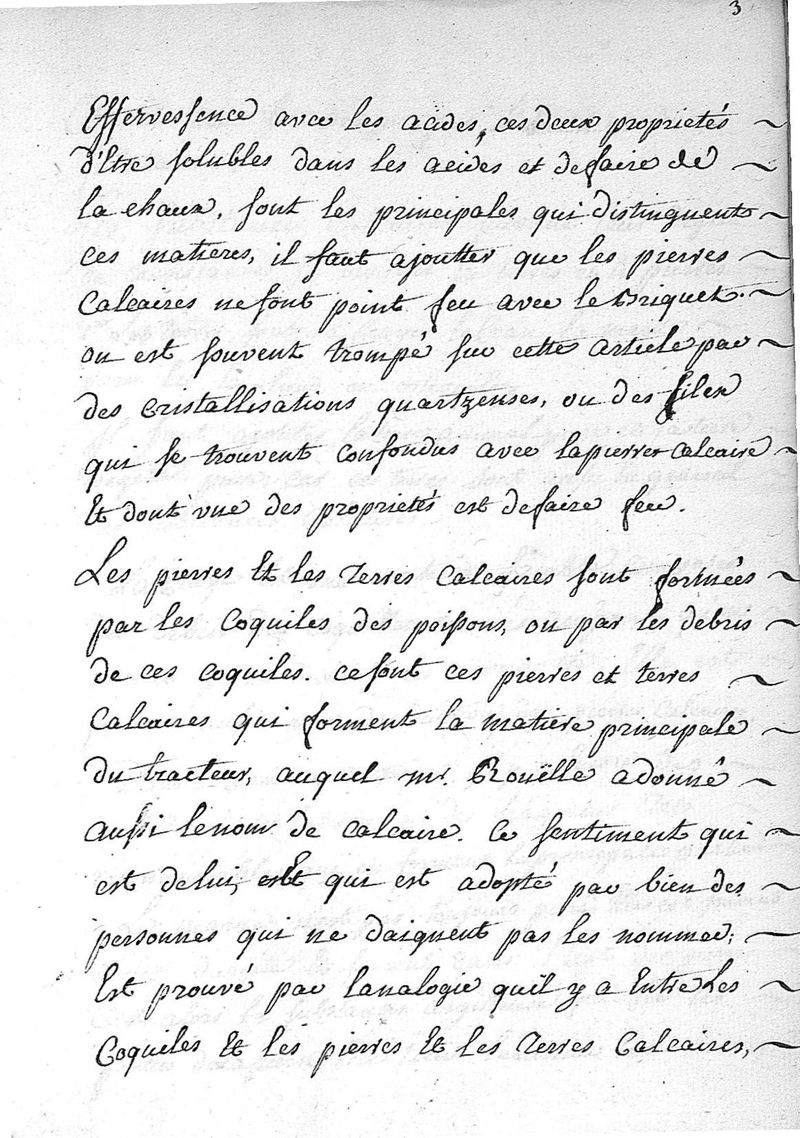 3
Effervessence avec les acides, ces deux proprietés ~
d'Etre solubles dans les acides et defaire dé ~
la chaux, sont les principales qui distinguent ~
ces matieres, il faut ajoutter que les pierres ~
Calcaires nefont point feu avec le Briquet. ~
on est souvent trompé sur cette article par ~
des cristallisations quartzenses, ou des silex
qui se trouvent confondus avec lapierre calcaire ~
Et dont vue des proprietés est defaire feu.
Les pierres Et les Terres Calcaires sont formées ~
par les Coquiles des poissons, ou par les debris ~
de ces coquiles. cesont ces pierres et terres ~
Calcaires qui forment la matiere principale ~
du tracteur, auquel mr. Rouëlle adonné ~
aussi lenom de calcaire. Ce sentiment qui ~
est delui, Et qui est adopté par bien des ~
personnes qui ne daignent pas les nommer; ~
Est prouvé par lanalogie quil y a Entre Les ~
Coquiles Et les pierres Et les Terres Calcaires, ~